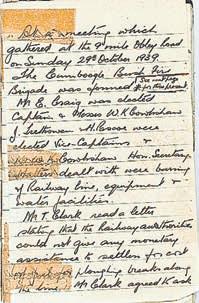 At a meeting which
gathered at the 9 mile Obley load
on Sunday 29th October 1939.
The Cumboogle Bush Fire
Brigade was formed
Mr E. Craig was elected
Captain & Messrs W. K. Cowbshaw
J. Leethowen & H. Pascoe were
elected Vice-Captains &
Cowbshaw Hon. Secretary.
Matters dealt with were burning
of Railway line, equipment &
water facilities.
Mr T. Clark read a letter
stating that the Railway authorities
could not give any monetary
assistance to settlers for cost
of ploughing breaks along
the line. Mr Clark agreed to ask